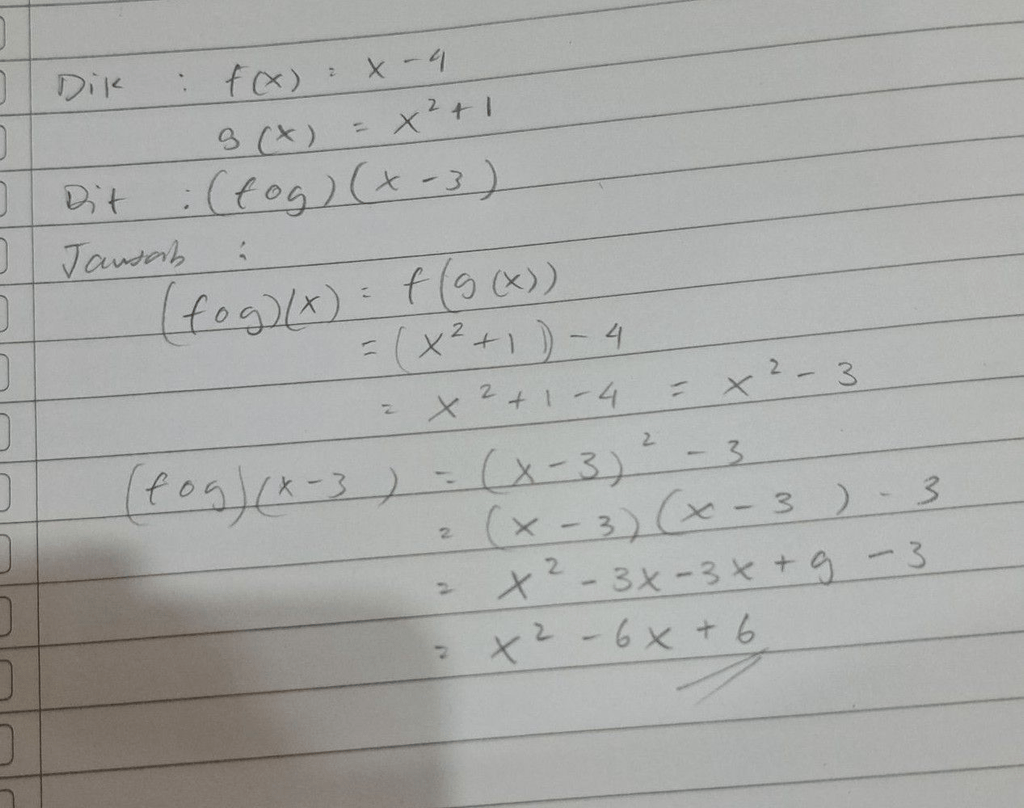 Dik : f(x) = x - 4
g(x) = x² + 1
Dit : (fog)(x - 3)
Jawab :
(fog)(x) = f(g(x))
= (x² + 1) - 4
= x² + 1 - 4 = x² - 3
(fog)(x - 3) = (x - 3)² - 3
= (x - 3)(x - 3) - 3
= x² - 3x - 3x + 9 - 3
= x² - 6x + 6